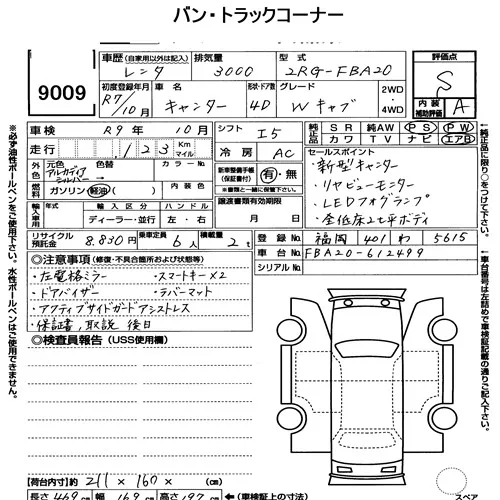 バン・トラックコーナー
9009
車歴 (自家用以外は記入) レンタ 排気量 3000 型式 2RG-FBA20 評価点 S
初度登録年月 R7/10月 車名 キャンター 形状・ドア数 4D グレード Wキャブ 2WD 4WD 内装補助評価 A
車検 R9年10月 シフト I5 純正品 SR 純AW PS PW
走行 .123 Km マイル 冷房 AC 純正品 カワ TV ナビ エアB
外色 元色 アルカディアシルバー → 色替 カラーNo. 新車整備手帳(保証書付) 有・無 ※書類と一緒に保管して下さい。
セールスポイント
・新型キャンター
・リヤビューモニター
・LEDフォグランプ
・全低床2t平ボディ
燃料 ガソリン 軽油( ) 内装色
輸入車用 輸入区分 ハンドル 譲渡書類有効期限
ディーラー・並行 左・右 月 日
年式
リサイクル預託金 8,830円 乗車定員 6人 積載量 2t 登録No. 福岡 401 わ 5615
車台No. FBA20-612499
シリアルNo.
◎注意事項 (修復・不具合箇所および状態等)
・左電格ミラー ・スマートキー×2
・ドアバイザー ・ラバーマット
・アクティブサイドガードアシストレス
・保証書,取説 後日
◎検査員報告 (USS使用欄)
【荷台内寸】 211 × 160 × (cm)
長さ 469cm 幅 169cm 高さ 197cm ←(車検証上の寸法)
スペア
※必ず油性ボールペンをご使用下さい。水性ボールペンはご使用できません。
※純正品に限り○をつけて下さい。
※車台番号は左詰めで車検証記載の通りご記入下さい。